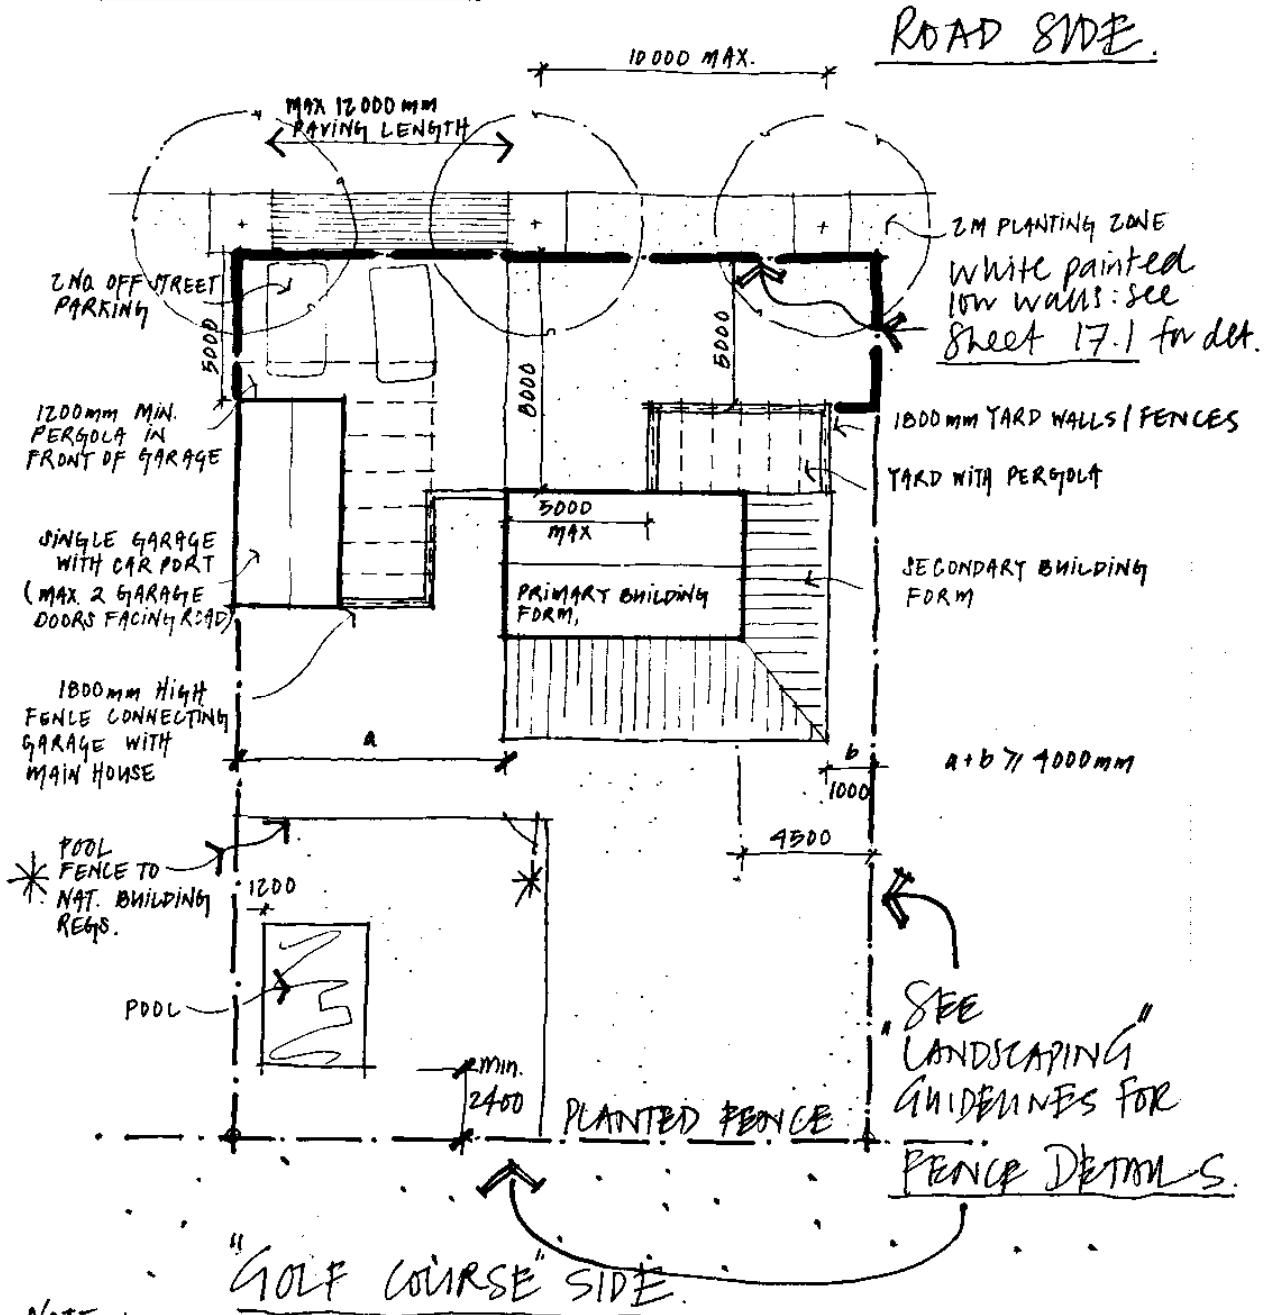 ROAD SIDE.
10000 MAX.
MAX 12000mm
PAVING LENGTH
2M PLANTING ZONE
White painted
low walls: see
Sheet 17.1 for det.
2 NO. OFF STREET
PARKING
5000
8000
5000
1200mm MIN.
PERGOLA IN
FRONT OF GARAGE
1800mm YARD WALLS / FENCES
YARD WITH PERGOLA
5000
MAX
SINGLE GARAGE
WITH CAR PORT
(MAX 2 GARAGE
DOORS FACING ROAD)
PRIMARY BUILDING
FORM,
SECONDARY BUILDING
FORM
1800mm HIGH
FENCE CONNECTING
GARAGE WITH
MAIN HOUSE
a
b
1000
a+b ⩾ 4000mm
4500
POOL
FENCE TO
NAT. BUILDING
REGS.
1200
POOL
min.
2400
PLANTED FENCE
"SEE
LANDSCAPING"
GUIDELINES FOR
FENCE DETAILS.
"GOLF COURSE" SIDE.